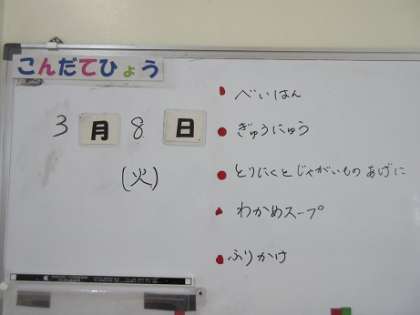 こんだてひょう
3月8日
(火)
べいはん
ぎゅうにゅう
とりにくとじゃがいものあげに
わかめスープ
ふりかけ